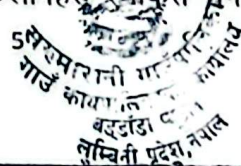 5
सरुमारानी गाउँपालिका
गाउँ कार्यपालिकाको कार्यालय
बड्डाँडा
लुम्बिनी प्रदेश, नेपाल